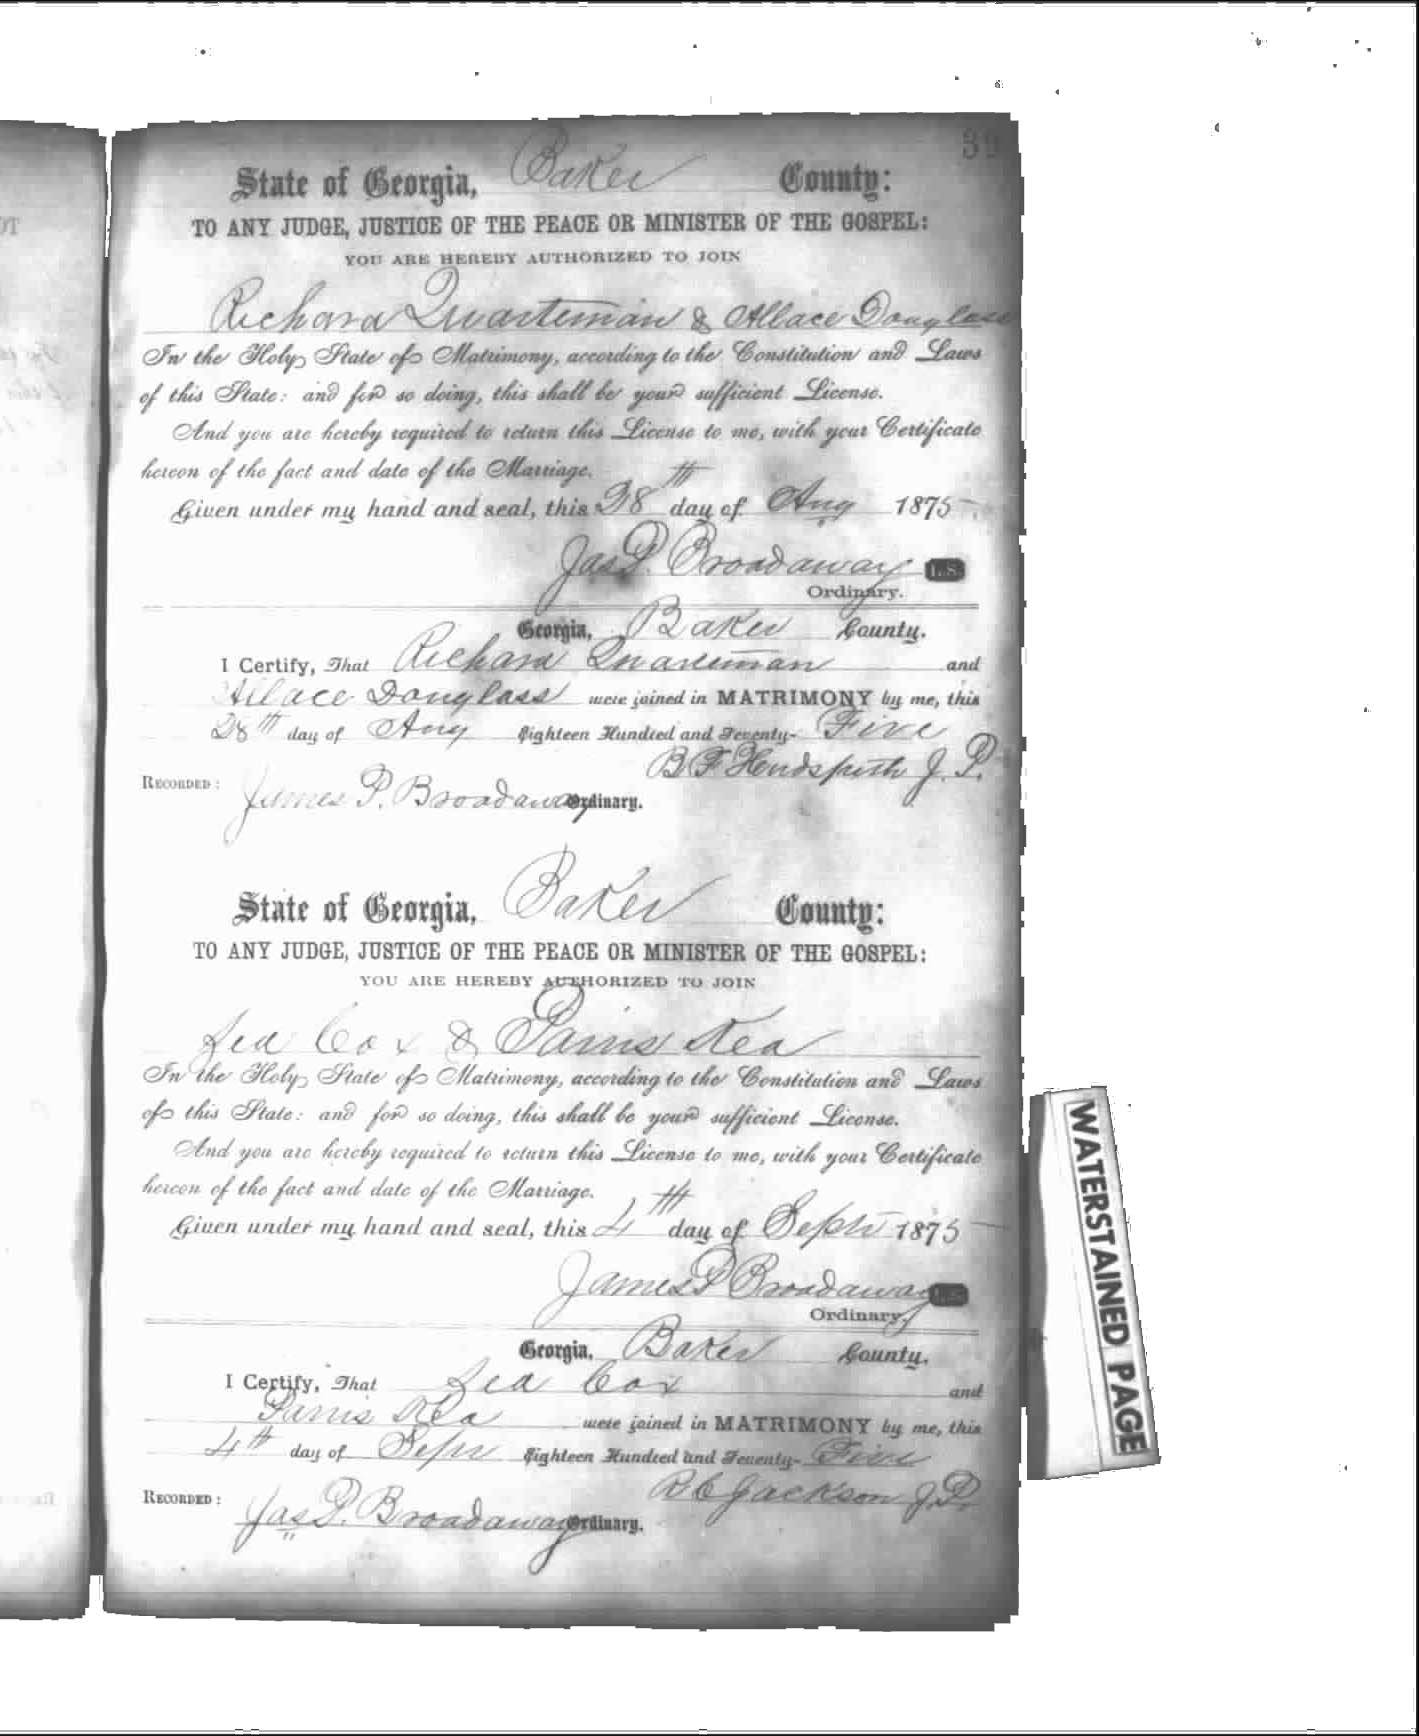 State of Georgia, Baker County:
TO ANY JUDGE, JUSTICE OF THE PEACE OR MINISTER OF THE GOSPEL:
YOU ARE HEREBY AUTHORIZED TO JOIN
Richard Quarteman & Allace Douglass
In the Holy State of Matrimony, according to the Constitution and Laws
of this State: and for so doing, this shall be your sufficient License.
And you are hereby required to return this License to me, with your Certificate
hereon of the fact and date of the Marriage.
Given under my hand and seal, this 28th day of Aug 1875
Jas P. Broadaway L.S.
Ordinary.
Georgia, Baker County.
I Certify, That Richard Quarteman and
Allace Douglass were joined in MATRIMONY by me, this
28th day of Aug Eighteen Hundred and Seventy-Five
B F Hudspeth J. P.
RECORDED: James P. Broadaway Ordinary.
State of Georgia, Baker County:
TO ANY JUDGE, JUSTICE OF THE PEACE OR MINISTER OF THE GOSPEL:
YOU ARE HEREBY AUTHORIZED TO JOIN
Cox & Kea
In the Holy State of Matrimony, according to the Constitution and Laws
of this State: and for so doing, this shall be your sufficient License.
And you are hereby required to return this License to me, with your Certificate
hereon of the fact and date of the Marriage.
Given under my hand and seal, this 4th day of Sept 1875
James P Broadaway L.S.
Ordinary.
Georgia, Baker County.
I Certify, That Cox and
Kea were joined in MATRIMONY by me, this
4th day of Sept Eighteen Hundred and Seventy-Five
R C Jackson J.P.
RECORDED: Jas P. Broadaway Ordinary.
WATERSTAINED PAGE